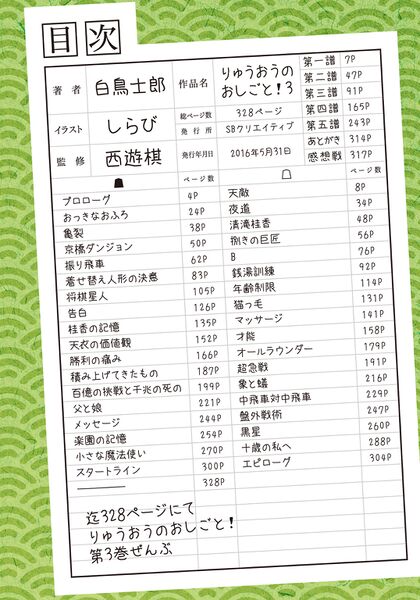 目次
著者 白鳥士郎 作品名 りゅうおうの おしごと!3
イラスト しらび 総ページ数 328ページ
発行所 SBクリエイティブ
監修 西遊棋 発行年月日 2016年5月31日
第一譜 7P
第二譜 47P
第三譜 91P
第四譜 165P
第五譜 243P
あとがき 314P
感想戦 317P
ページ数 ページ数
プロローグ 4P 天敵 8P
おっきなおふろ 24P 夜道 34P
亀裂 38P 清滝桂香 48P
京橋ダンジョン 50P 捌きの巨匠 56P
振り飛車 62P B 76P
着せ替え人形の決意 83P 銭湯訓練 92P
将棋星人 105P 年齢制限 114P
告白 126P 猫っ毛 131P
桂香の記憶 135P マッサージ 141P
天衣の価値観 152P 才能 158P
勝利の痛み 166P オールラウンダー 179P
積み上げてきたもの 187P 超急戦 191P
百億の挑戦と千兆の死の 199P 象と蟻 216P
父と娘 221P 中飛車対中飛車 229P
メッセージ 244P 盤外戦術 247P
楽園の記憶 254P 黒星 260P
小さな魔法使い 270P 十歳の私へ 288P
スタートライン 300P エピローグ 304P
328P
迄328ページにて
りゅうおうのおしごと!
第3巻ぜんぶ